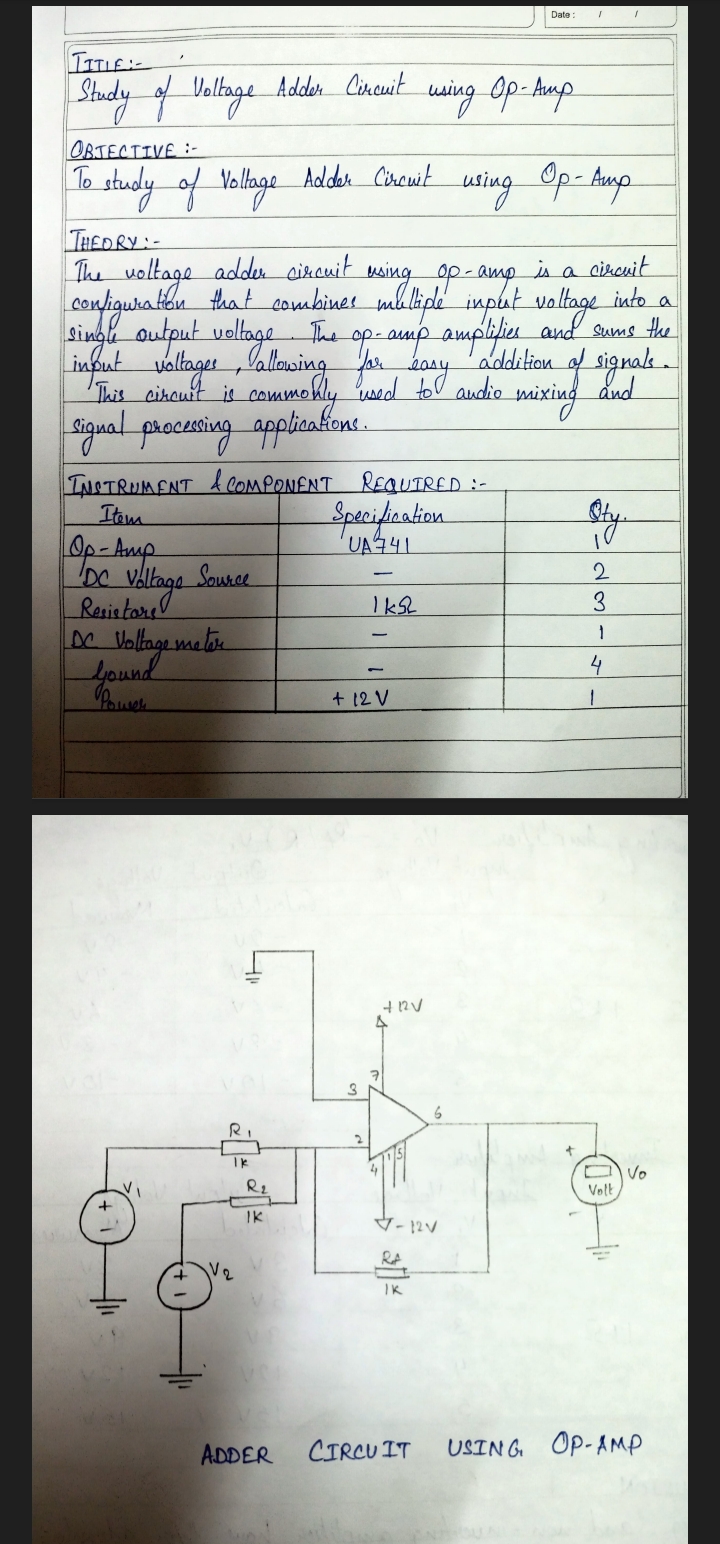 Date : / /
TITLE:-
Study of Voltage Adder Circuit using Op-Amp
OBJECTIVE :-
To study of Voltage Adder Circuit using Op-Amp
THEORY:-
The voltage adder circuit using op-amp is a circuit
configuration that combines multiple input voltage into a
single output voltage. The op-amp amplifies and sums the
input voltages, allowing for easy addition of signals.
This circuit is commonly used to audio mixing and
signal processing applications.
INSTRUMENT & COMPONENT REQUIRED :-
Item Specification Qty.
Op-Amp UA741 1
DC Voltage Source — 2
Resistors 1kΩ 3
DC Voltage meter — 1
Gound — 4
Power +12V 1
+12V
7
3
6
2
4 1 5
R1
1K
R2
1K
V1
+
-
V2
+
-
-12V
RF
1K
+
Volt
-
Vo
ADDER CIRCUIT USING OP-AMP